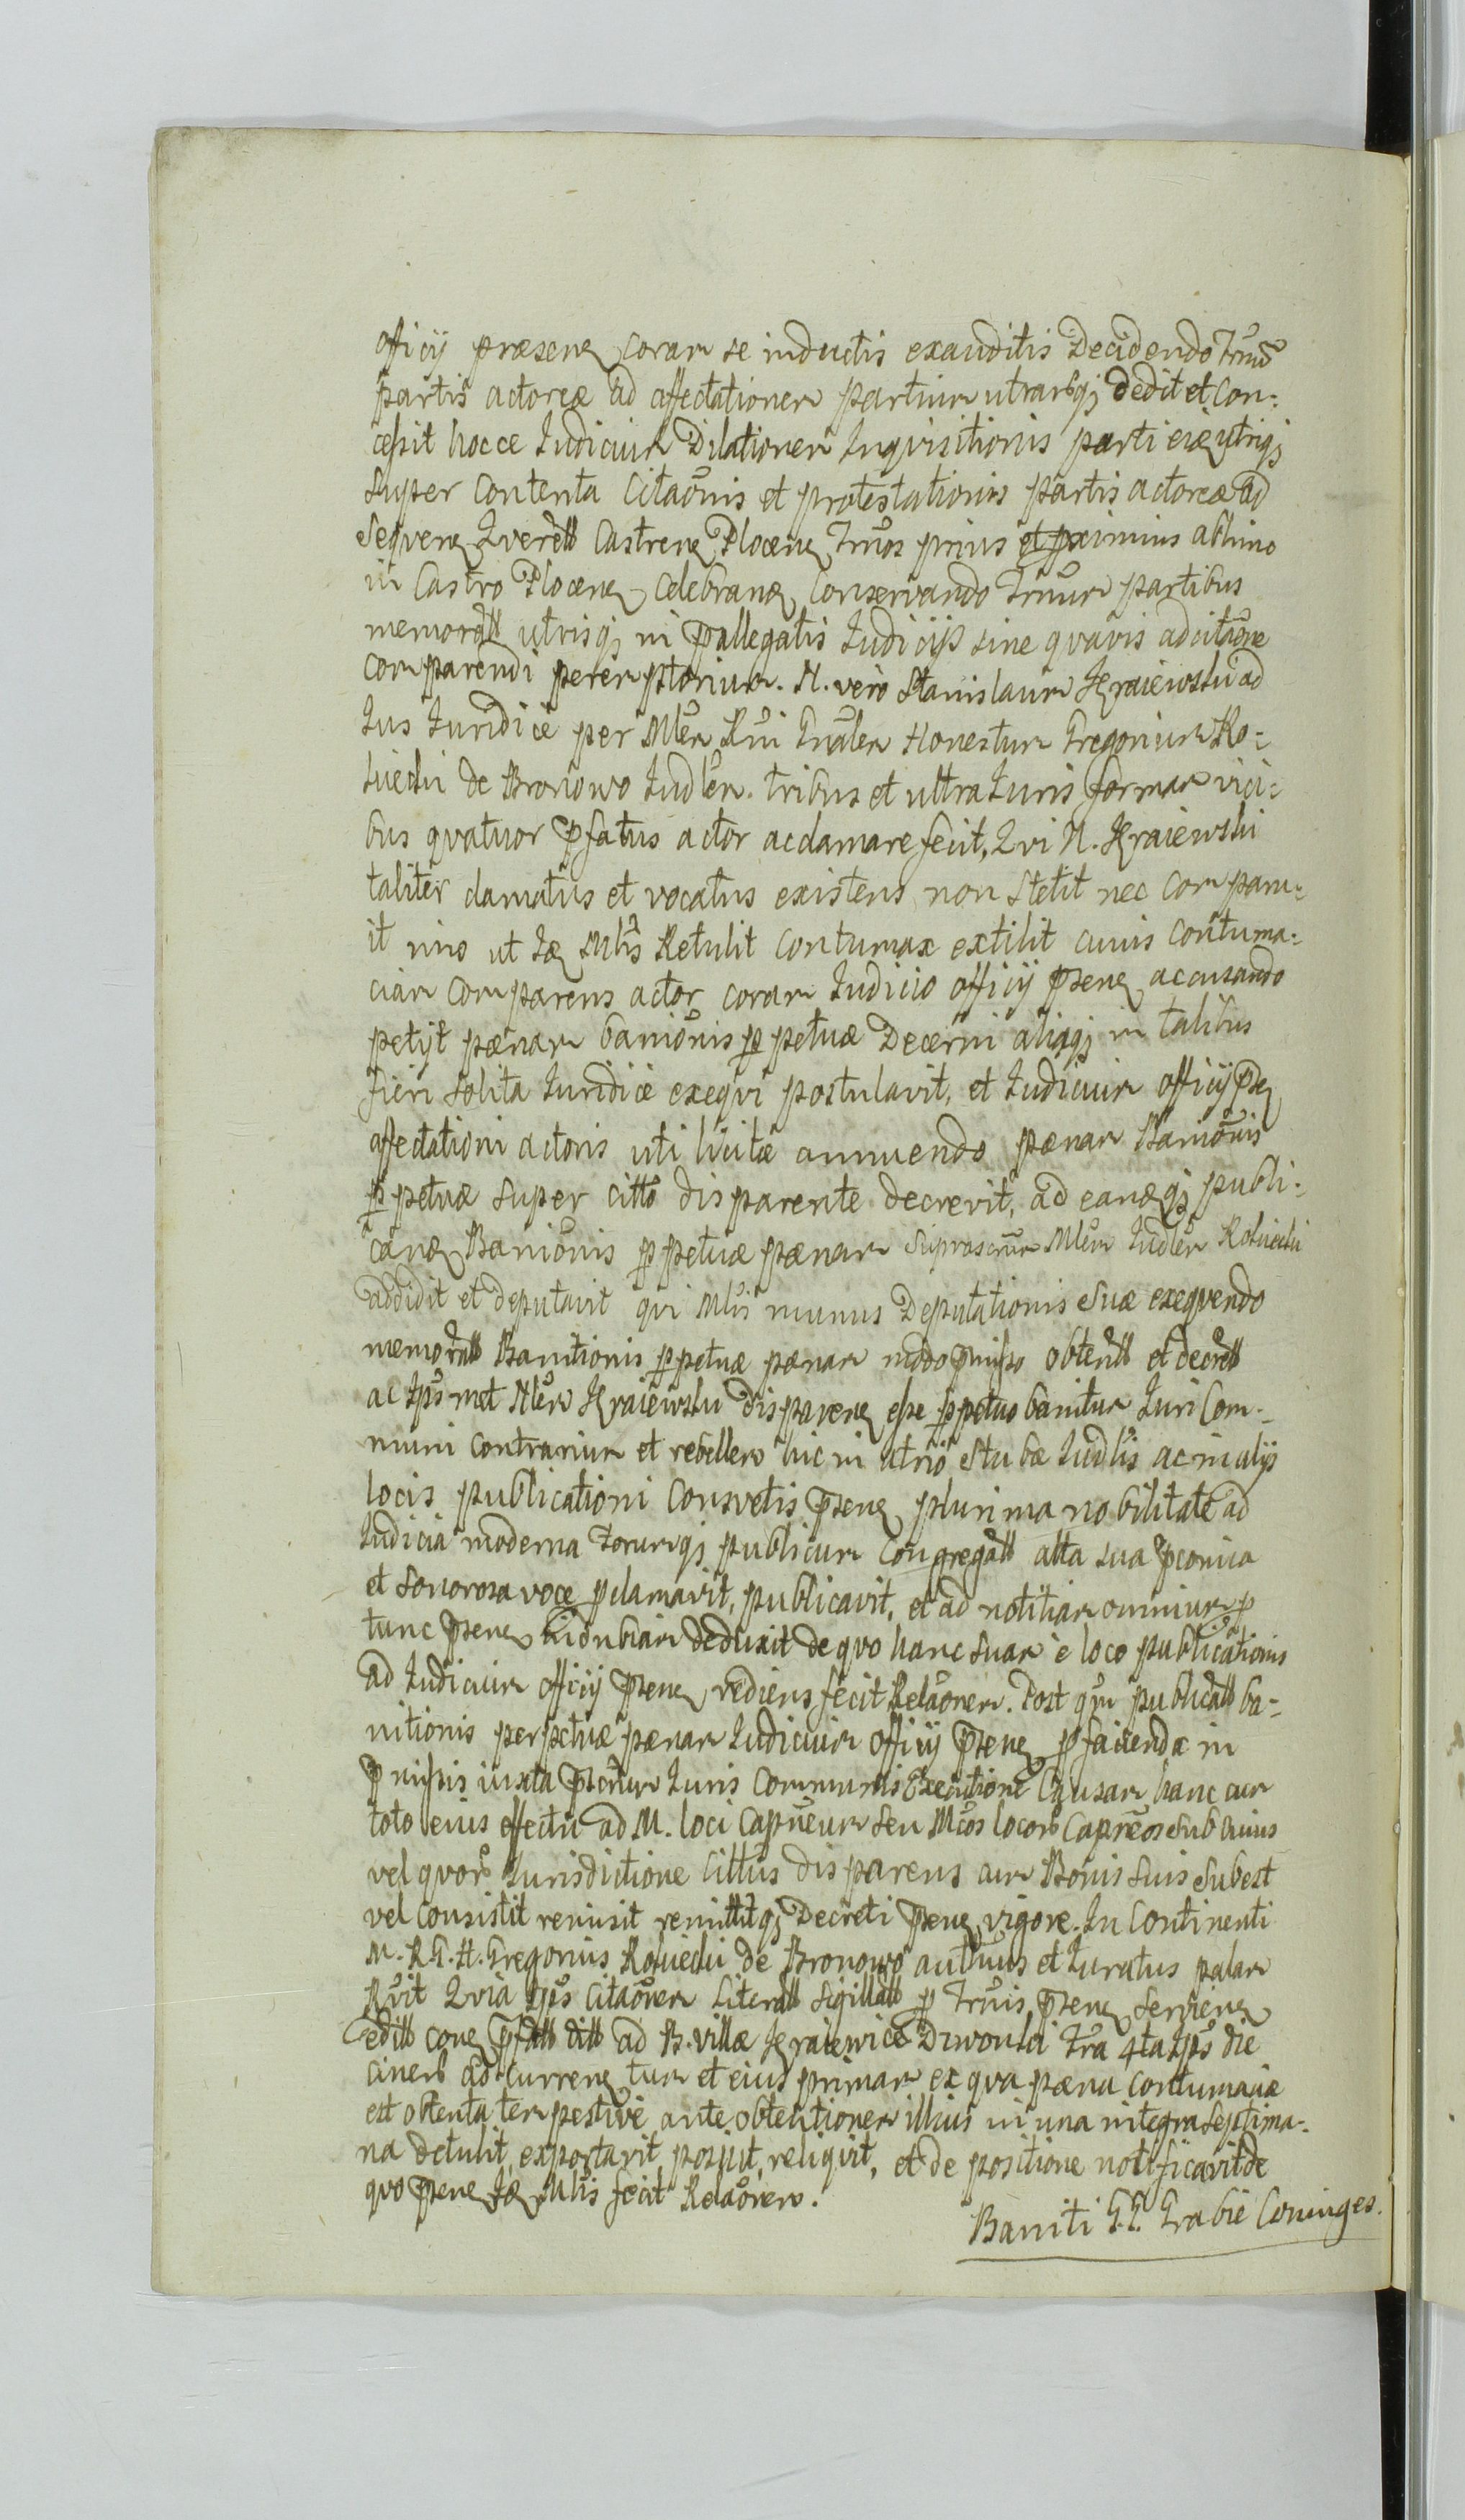 officij præsens coram se inductis exauditis Decidendo Trnũ
partis actoreæ ad affectationem partium utrarsqꝫ dedit et Con:
cessit hocce Iudicium Dilationem Inqvisitionis parti eiæ utriqꝫ
super contenta Citaõnis et protestationis partis actoreæ ad
seqvenꝫ Qverell Castrenꝫ Plocenꝫ Trños prius et pximius abhinc
in Castro Plocenꝫ celebranꝫ Conservando Trnum partibus
memorall utrisqꝫ in pallegatis Iudicijs sine qvavis adcitãone
comparendi peremptorium. N. vero Stanislaum Kraiewski ad
Ius Iuridice per Mlem Rni Gnalem Honestum Gregorium Ko:
luiecki de Bronowo Iudlem. tribus et ultra Iuris formam vici:
bus qvatuor pfatus actor acclamare fecit, Qvi N. Kraiewski
taliter clamatus et vocatus existens non stetit nec comparu:
it imo ut Iꝫ Mlis Retulit contumax extitit cuius contuma:
ciam comparens actor coram Iudicio officij psenꝫ accusando
petijt pænam baniõnis ppetuæ Decerni aliaqꝫ in talibus
fieri solita Iuridice exeqvi postulavit, et Iudicium officij psenꝫ
affectationi actoris uti licitæ annuendo pænam Baniõnis
ppetuæ super citto disparente decrevit, ad eanꝫqꝫ publi:
canꝫ Baniõnis ppetuæ pænam suprascrum Mlem Iudlem Koluiecki
addidit et deputavit qvi Mlis munus Deputationis suæ exeqvendo
memorall Banitionis ppetuæ pænam modo pmisso obtentll et decretll
ac Ips met Nlem Kraiewski disparenꝫ esse ppetuo banitum Iuri Com:
muni contrarium et rebellem hic in atrio stubæ Iudlis ac in alijs
locis publicationi Consvetis psenꝫ plurima nobilitate ad
Iudicia moderna Forumqꝫ publicum Congregall alta sua pconica
et sonorosa voce pclamavit, publicavit, et ad notitiam omnium p
tunc psenꝫ indubiam deduxit de qvo hanc suam è loco publicationis
ad Iudicium officij psenꝫ rediens fecit Relãonem. Post qvm publicall ba:
nitionis perpetuæ pænam Iudicium officij psenꝫ p facienda in
pmissis iuxta pscriptum Iuris Communis Executione Causam hanc cum
toto eius effectu ad M. loci Capneum seu Mcos locorb Capneos sub cuius
vel qvorb Iurisdictione Cittus disparens cum Bonis suis subest
vel consistit remisit remittitqꝫ Decreti psenꝫ vigore. In Continenti
M. R. G. H. Gregorius Koluiecki de Bronowo authcus et Iuratus palam
Rvit Qvia Ips Citaõnem Literall Sigillall p Trnis psenꝫ servienꝫ
edill conꝫ pfatll dill ad B. villæ Kraiewice Drwonski Fra 4ta Ips die
cinerb ad currenꝫ tum et eius primam ex qva pæna contumaciæ
est obtenta tempestive ante obtentionem illius in una integra septima:
na detulit, exportavit, posuit, reliqvit, et de positione notificavit de
qvo psenꝫ Iꝫ Mlis fecit Relãonem.
Baniti G.G. Grabie Coniuges.